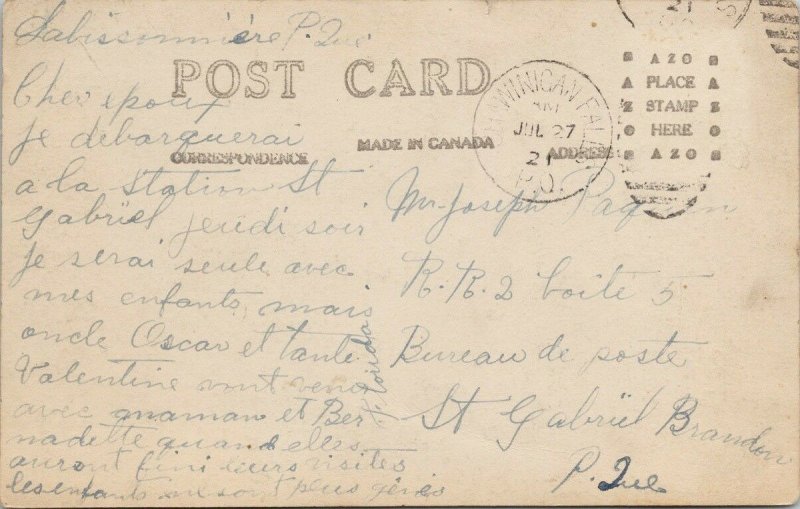 Labissonnière P. Qué
POST CARD
Cher epoux
Je débarquerai
CORRESPONDENCE
MADE IN CANADA
a la Station St
Gabriel jeudi soir
Je serai seule avec
mes enfants, mais
oncle Oscar et tante
Valentine vont venir
avec maman et Ber
nadette quand elles
auront fini leurs visites
les enfants ne sont plus gênés
SHAWINIGAN FALLS
AM
JUL 27
21
P.Q.
21
AZO
PLACE
STAMP
HERE
AZO
ADDRESS
Mr Joseph Paquin
R. R. 2 boite 5
Bureau de poste
St Gabriel Brandon
P. Que